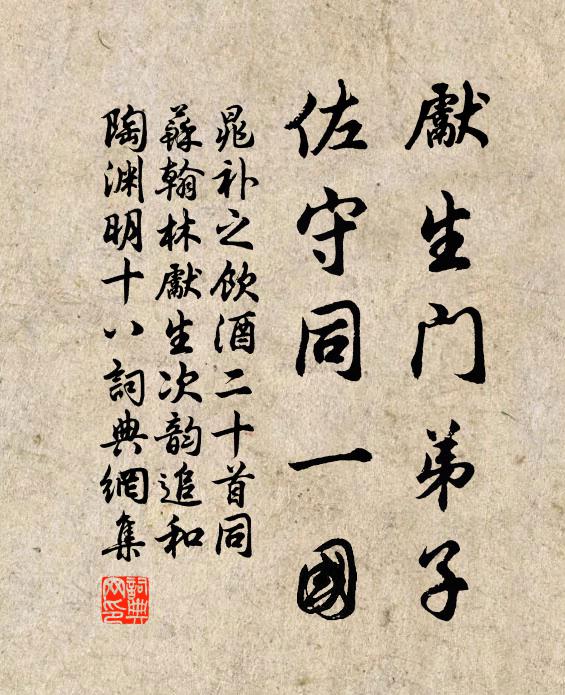 獻生門弟子
佐守同一國
晁补之飲酒二十首同
蘇翰林獻生次韵追和
陶渊明十八詞典網集
詞典
网印